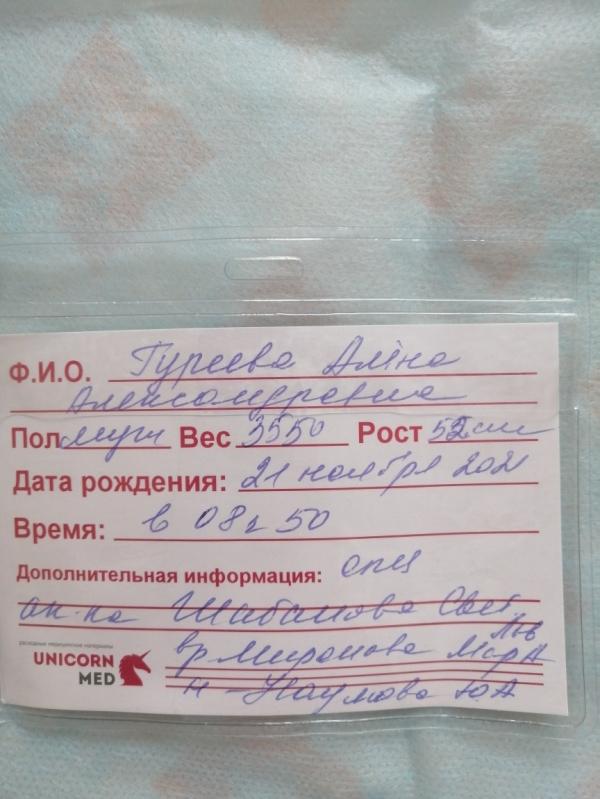 Ф.И.О. Гуреева Алина
Александровна
Пол муж Вес 3550 Рост 52 см
Дата рождения: 21 ноября 2021
Время: в 08ч 50
Дополнительная информация:
ак-ка Шабанова Свет.
Льв
расходные медицинские материалы
UNICORN MED
вр Миронова Мар А
Наумова Ю.А